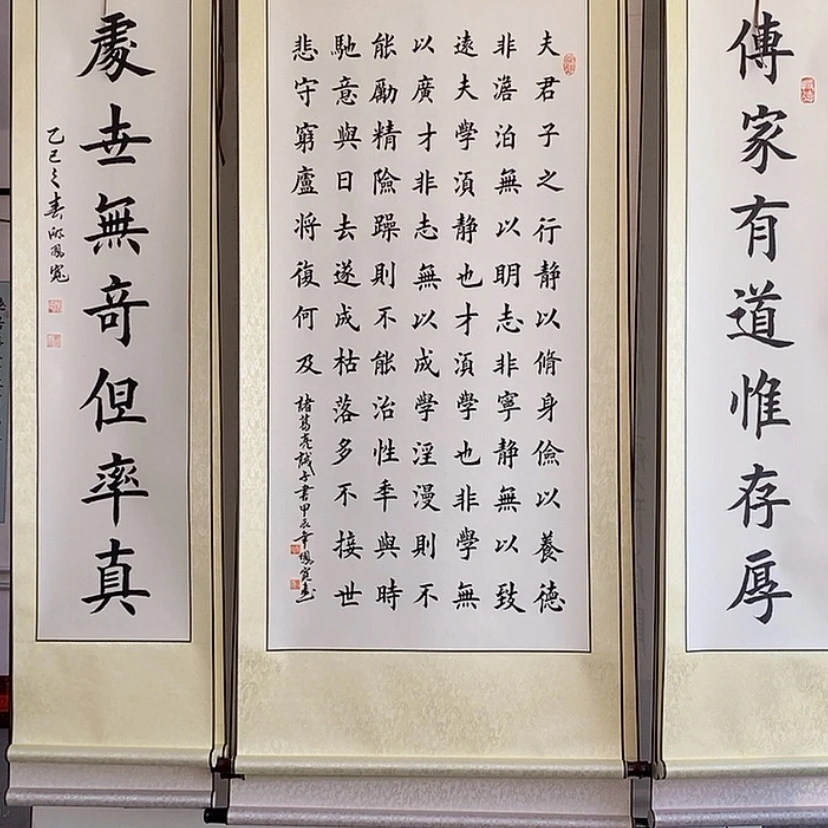 傳家有道惟存厚
夫君子之行静以脩身儉以養德
非澹泊無以明志非寧静無以致
遠夫學湏静也才湏學也非學無
以廣才非志無以成學淫漫則不
能勵精險躁則不能治性秊與時
馳意與日去遂成枯落多不接世
悲守窮廬將復何及
諸葛亮誡子書甲辰年鳳寬書
處世無竒但率真
乙巳之春 鳳寬